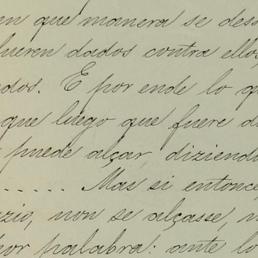 en que manera se des
fueren dados contra ellos
dos. E por ende lo q
que luego que fuere d
puede alçar, diziend
...... Mas si entonce
zio, non se alçasse, n
por palabra: ante lo